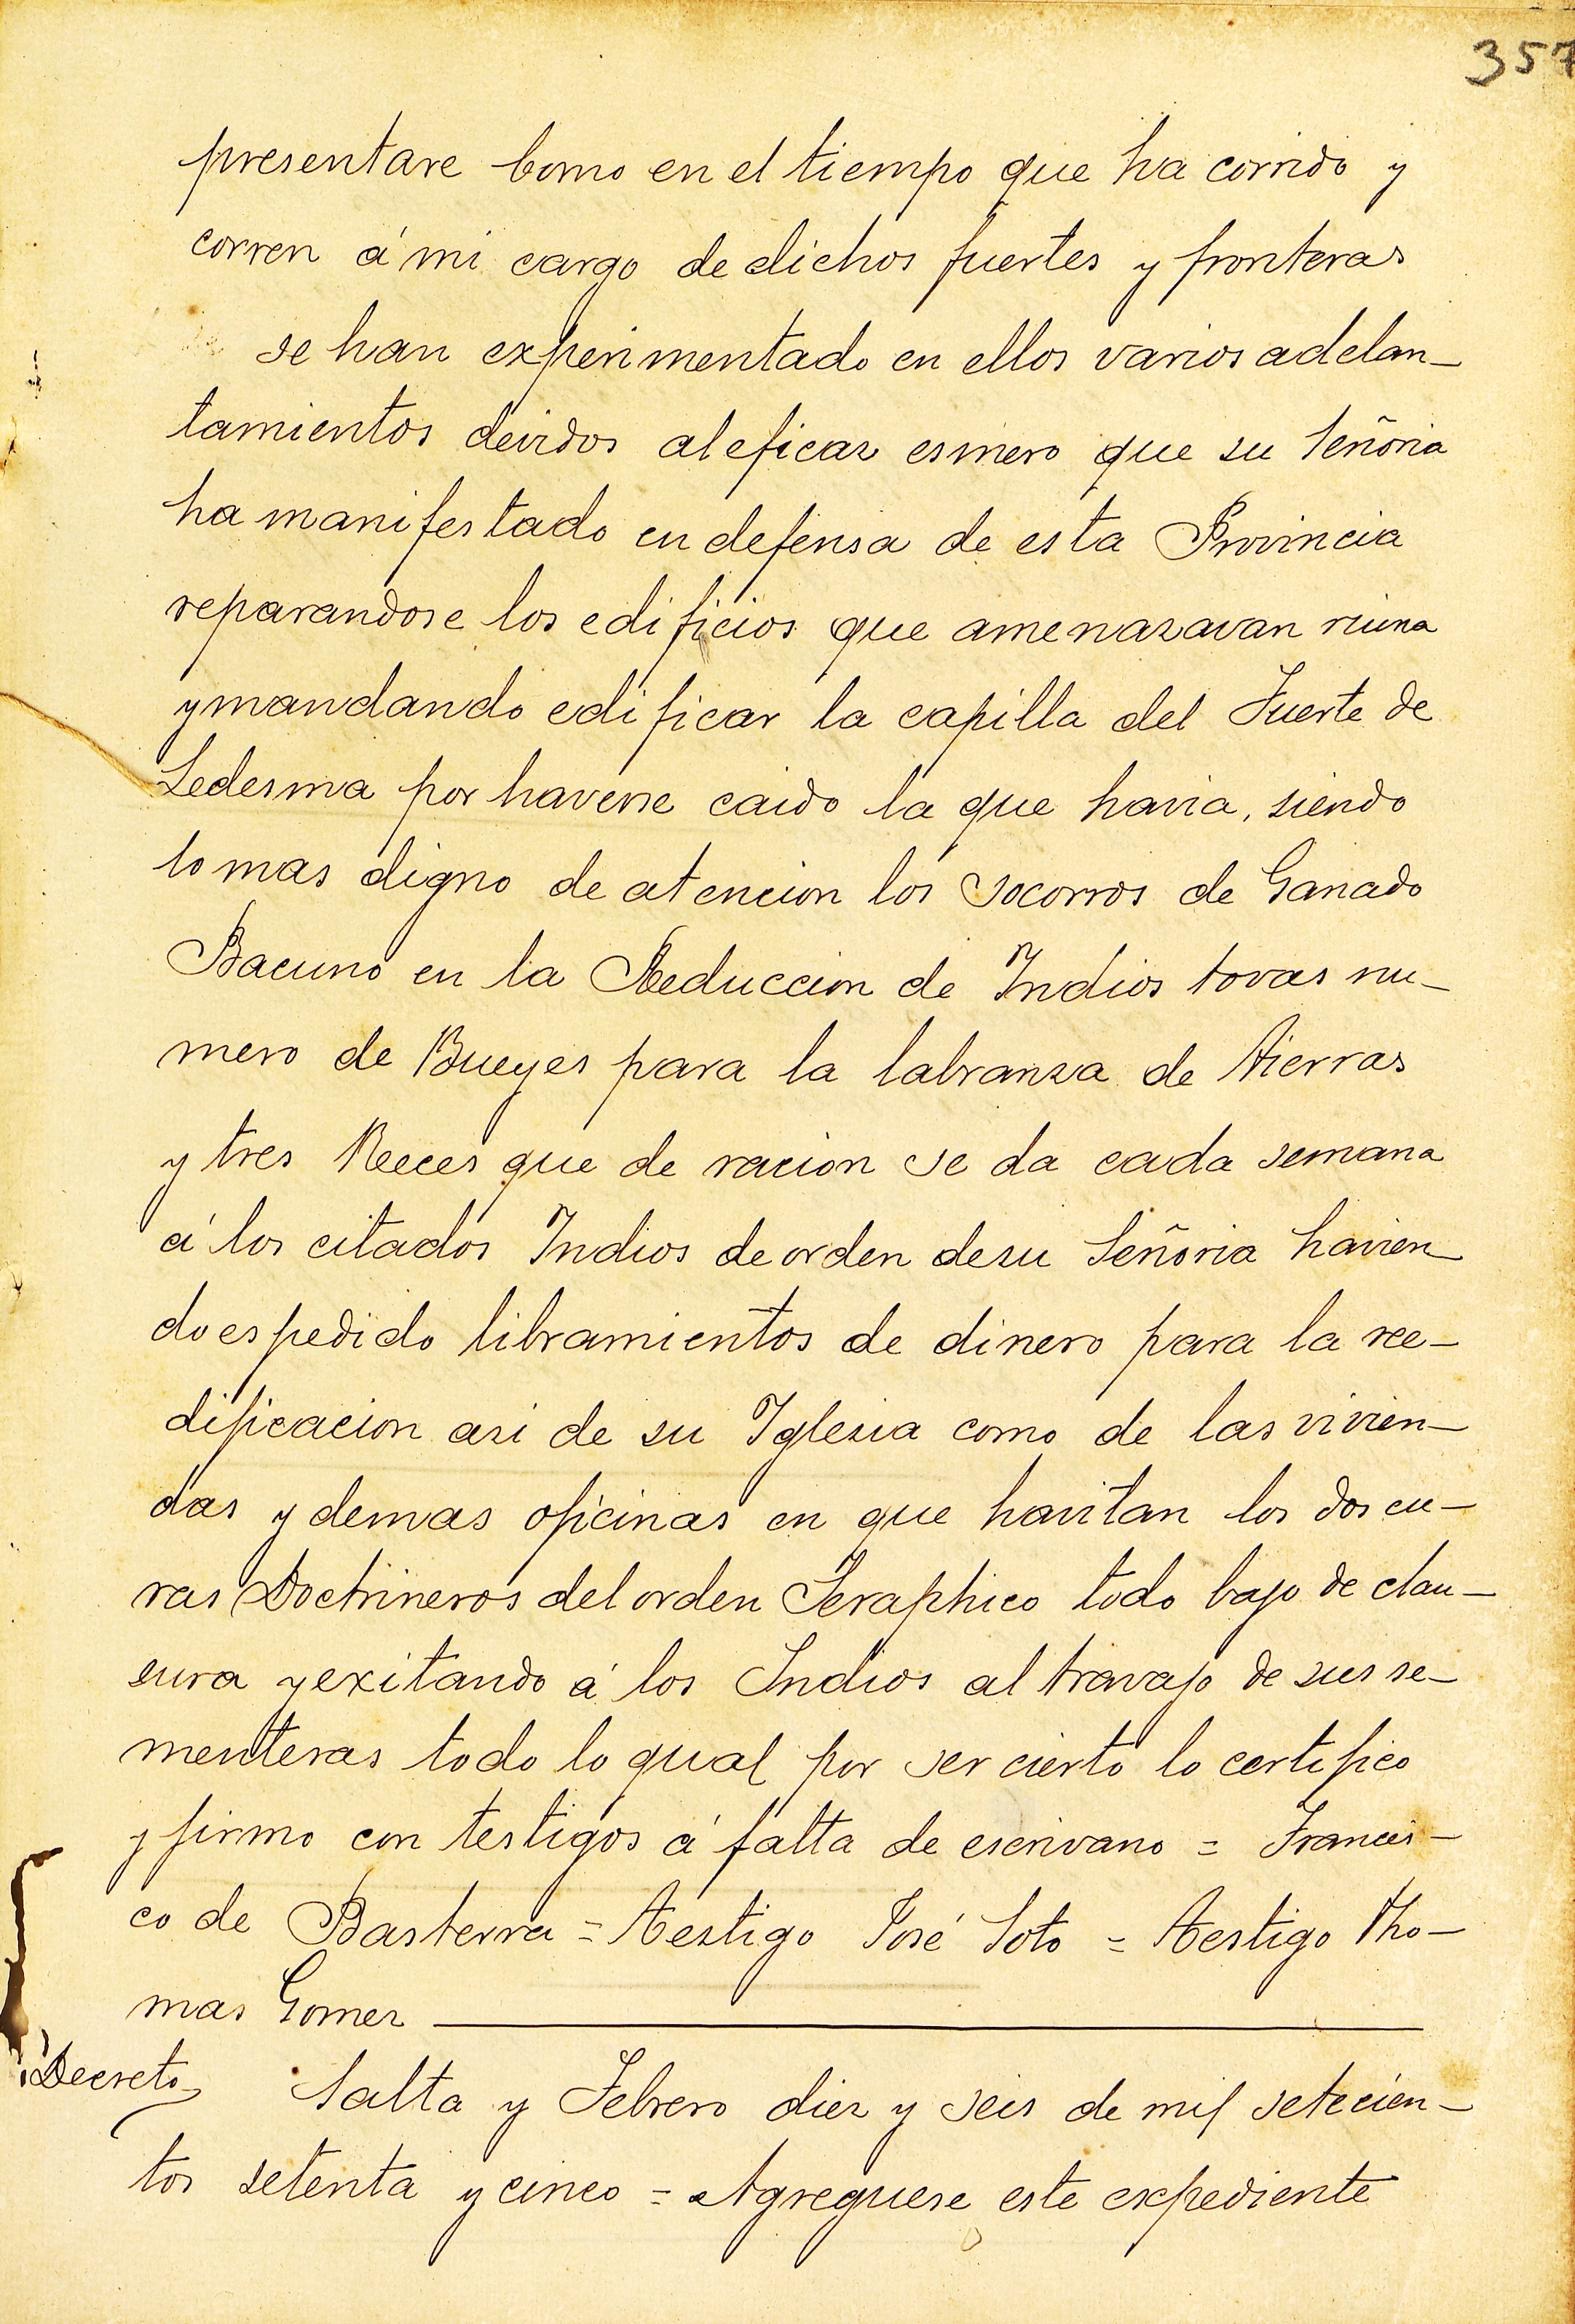 357
presentare Como en el tiempo que ha corrido y
corren á mi cargo de dichos fuertes y fronteras
se han experimentado en ellos varios adelan-
tamientos devidos al eficaz esmero que su Señoria
ha manifestado en defensa de esta Provincia
reparandose los edificios que amenazavan riuna
y mandando edificar la capilla del Fuerte de
Ledesma por haverse caido la que havia, siendo
lo mas digno de atencion los socorros de Ganado
Bacuno en la Reduccion de Indios tovas nu-
mero de Bueyes para la labranza de Tierras
y tres Reeces que de racion se da cada semana
á los citados Indios de orden de su Señoria havien-
do espedido libramientos de dinero para la ree-
dificacion asi de su Iglesia como de las vivien-
das y demas oficinas en que havitan los dos cu-
ras Doctrineros del orden Seraphico todo bajo de clau-
sura y exitando á los Indios al travajo de sus se-
menteras todo lo qual por ser cierto lo certifico
y firmo con testigos á falta de escrivano = Francis-
co de Basterra = Testigo José Soto = Testigo Tho-
mas Gomez
Decreto Salta y Febrero diez y seis de mil setecien-
tos setenta y cinco = Agreguese este expediente